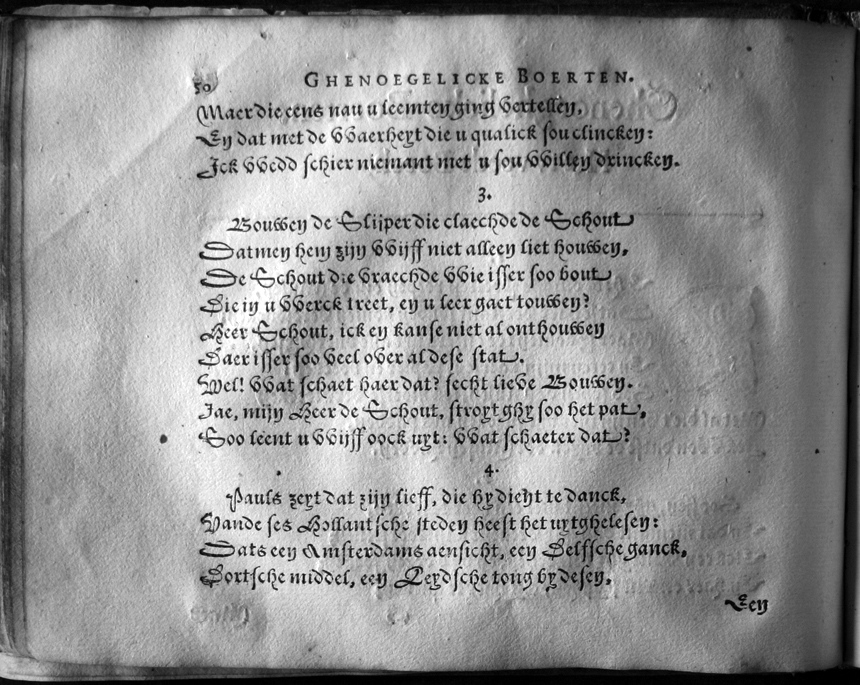 50
GHENOEGELICKE BOERTEN.
Maer die eens nau u leemten ging vertellen,
En dat met de VVaerheyt die u qualick sou clincken:
Ick VVedd schier niemant met u sou VVillen drincken.
3.
Bouwen de Slijper die claechde de Schout
Datmen hem zijn VVijff niet alleen liet houwen,
De Schout die vraechde VVie isser soo bout
Die in u VVerck treet, en u leer gaet touwen?
Heer Schout, ick en kanse niet al onthouwen
Daer isser soo veel over al dese stat.
Wel! VVat schaet haer dat? secht lieve Bouwen.
Jae, mijn Heer de Schout, stroyt ghy soo het pat,
Soo leent u VVijff oock uyt: VVat schaeter dat?
4.
Pauls zeyt dat zijn lieff, die hy dicht te danck,
Vande ses Hollantsche steden heeft het uytghelesen:
Dats een Amsterdams aensicht, een Delfsche ganck,
Dortsche middel, een Leydsche tong by desen,
Een